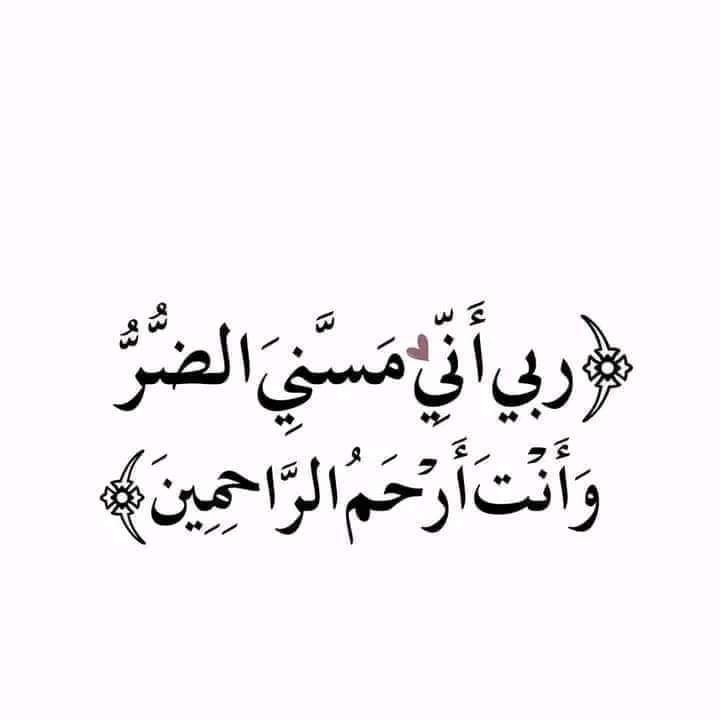 ﴿ربي أَنِّي مَسَّنِيَ الضُّرُّ
وَأَنْتَ أَرْحَمُ الرَّاحِمِينَ﴾